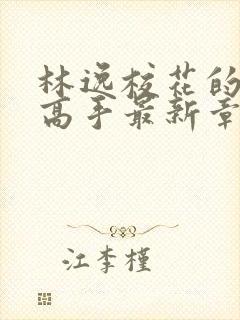 林逸校花的
高手最新章
江李槿